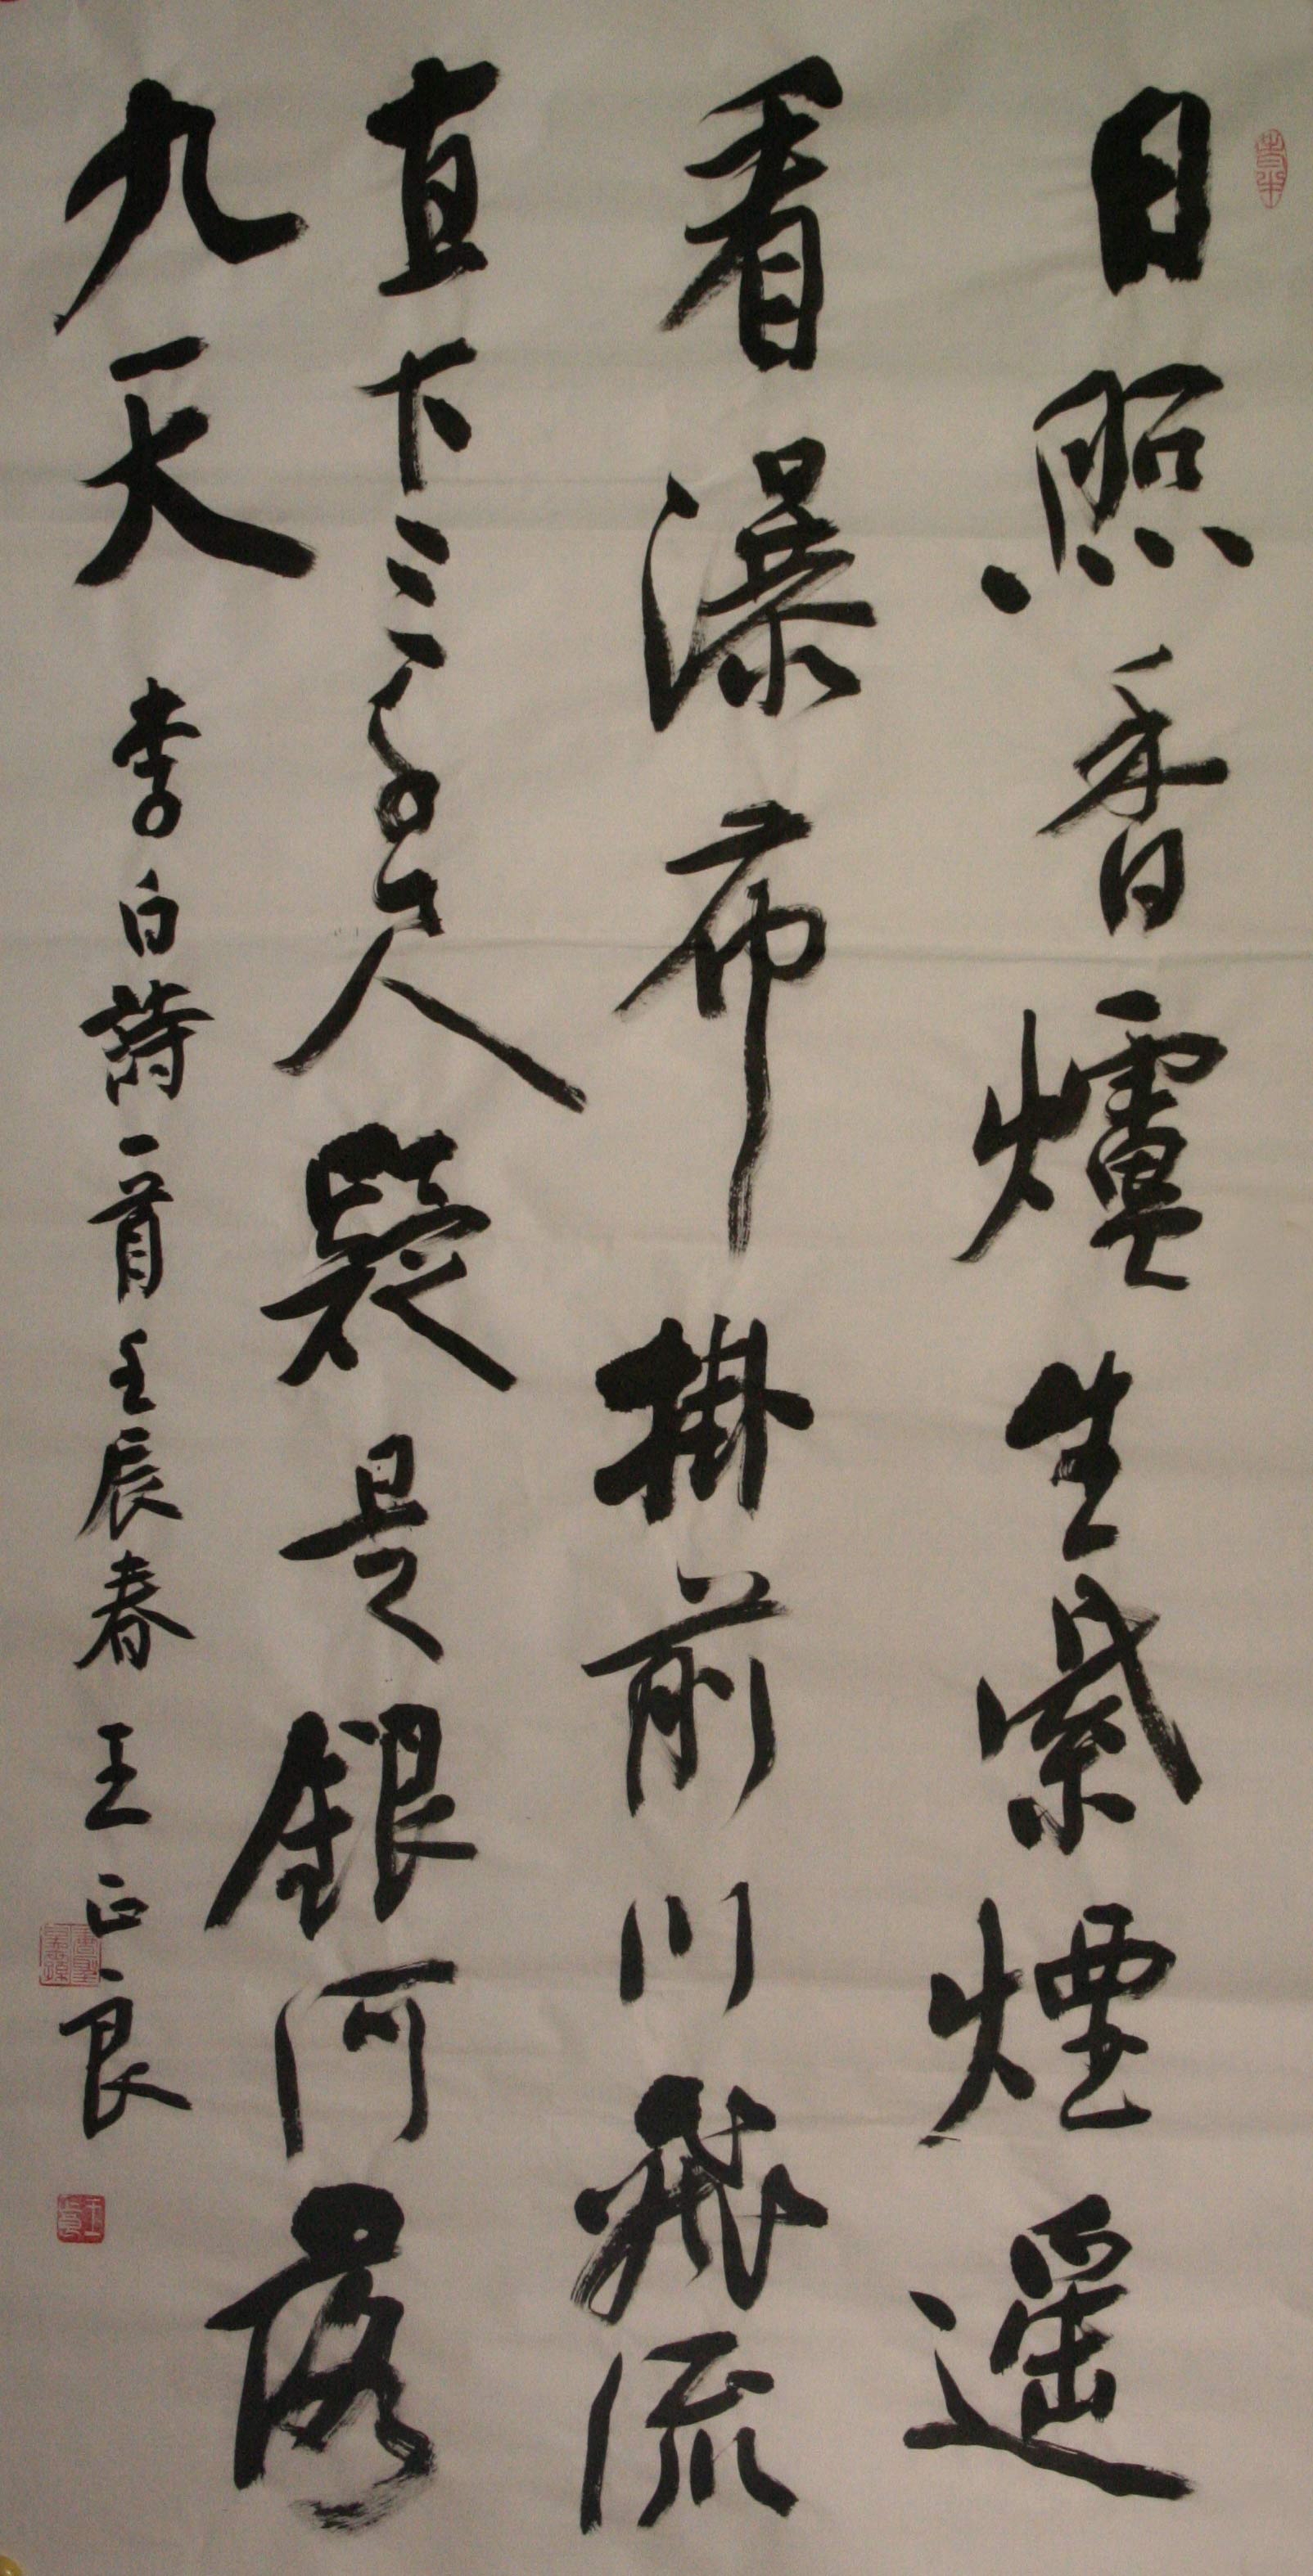 日照香爐生紫煙遥
看瀑布掛前川飛流
直下三千尺疑是銀河落
九天
李白詩一首壬辰春王正良